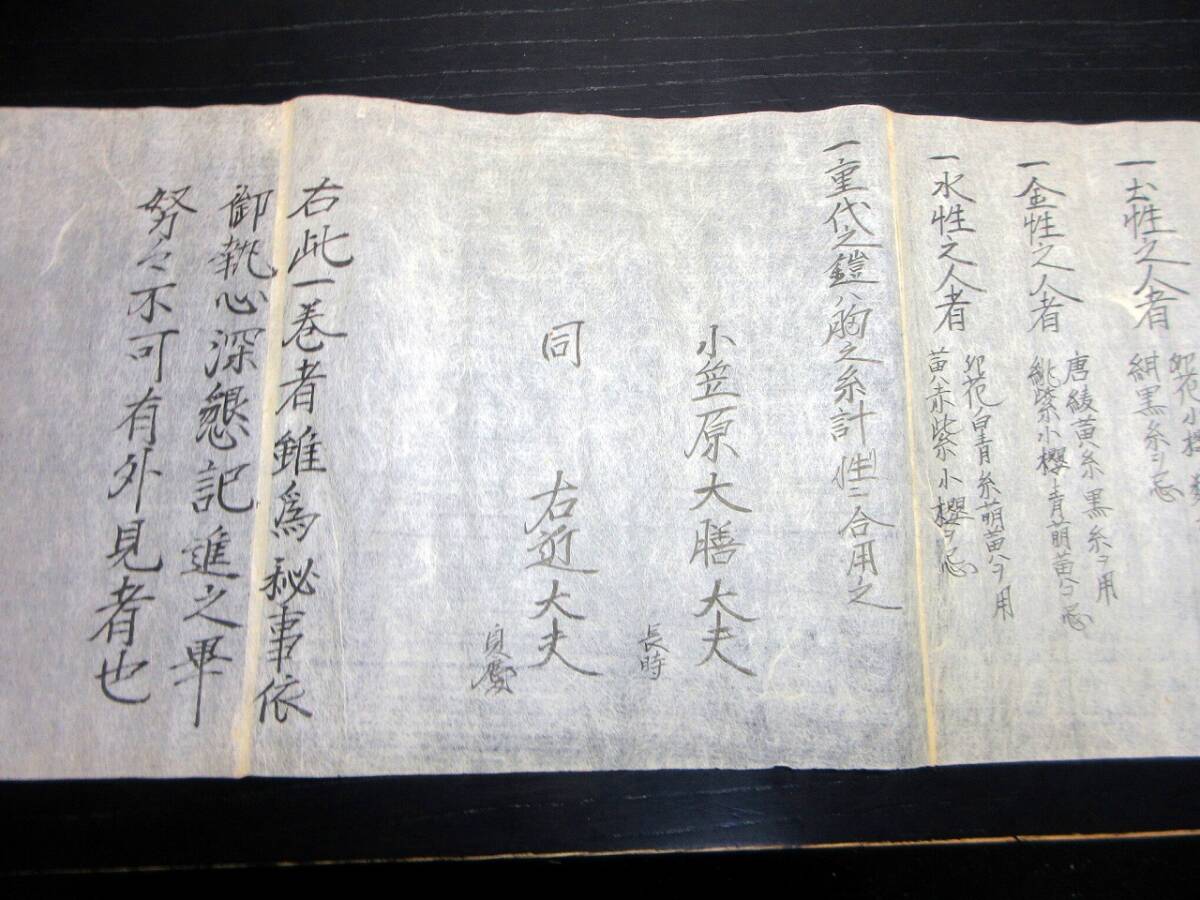 一土性之人者
卯花小桜
紺黒糸ヲ忌
一金性之人者
唐綾黄糸黒糸ヲ用
紫小櫻青萌黄ヲ忌
一水性之人者
卯花白青糸萌黄ヲ用
黄赤紫小櫻ヲ忌
一重代之鎧ハ胸之糸計性ニ合用之
小笠原大膳大夫
長時
同 右近大夫
貞慶
右此一巻者雖為秘事依
御執心深懇記進之畢
努々不可有外見者也